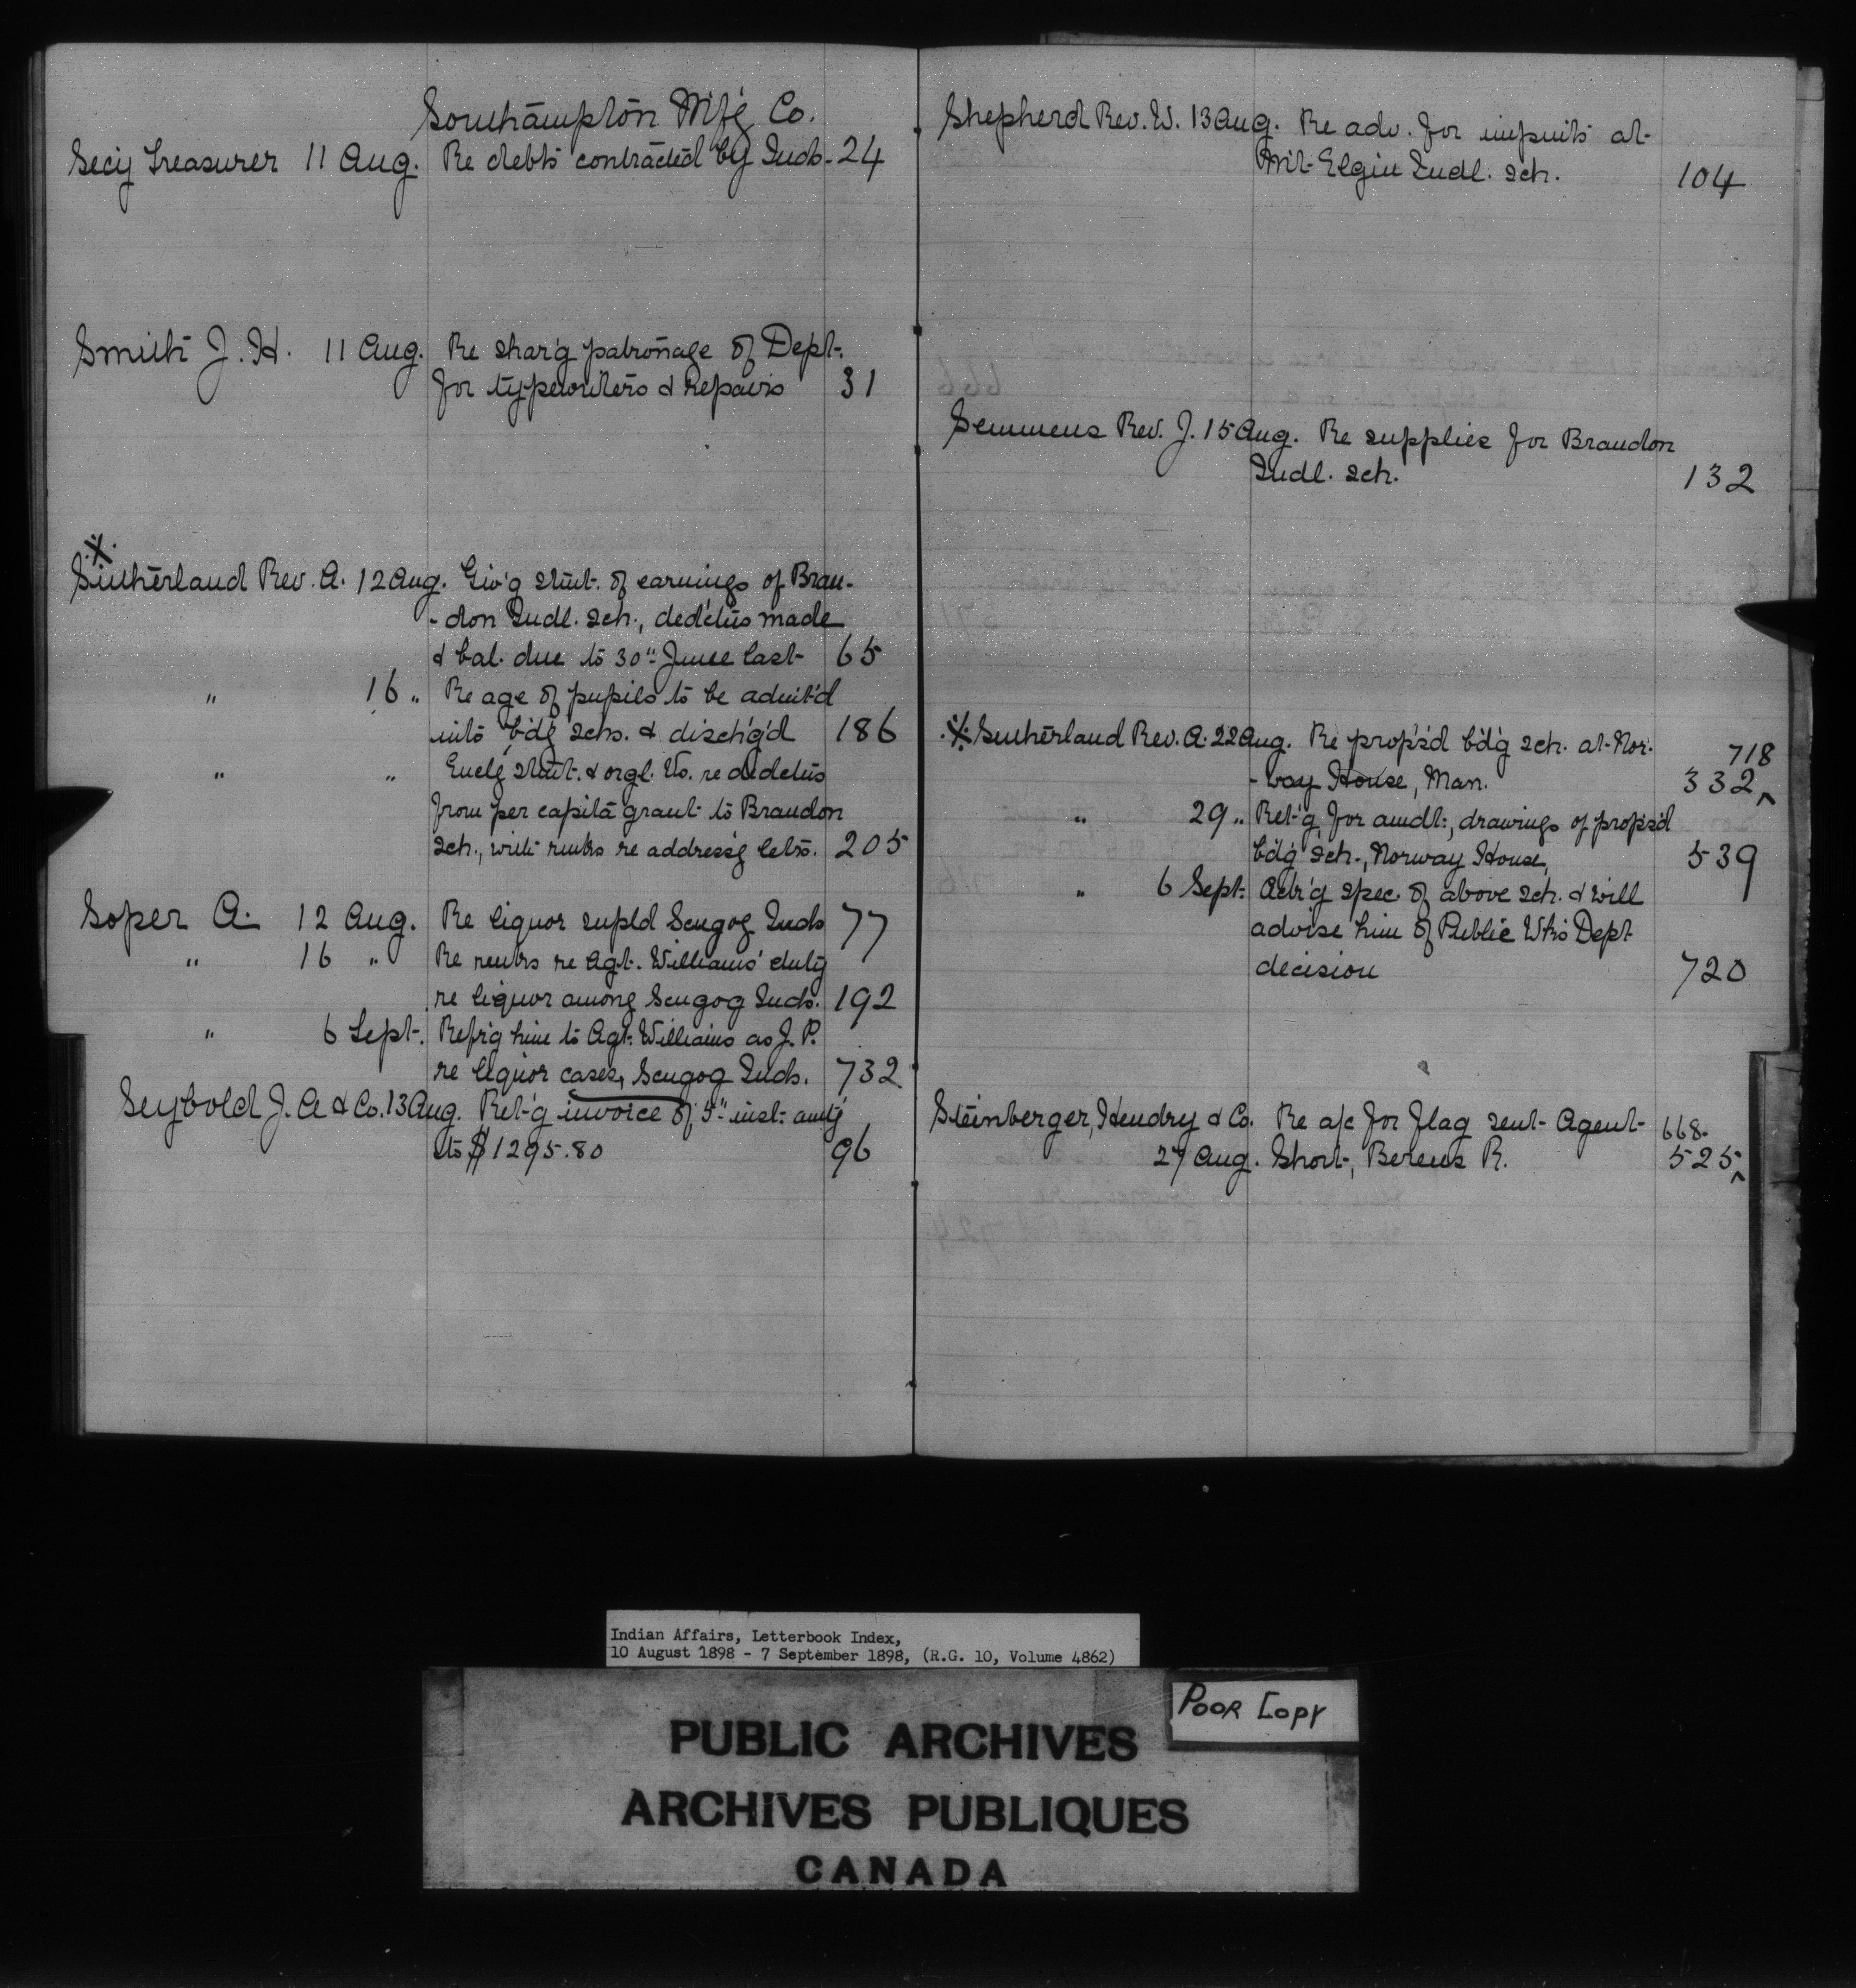 Southampton M'f'g Co.
Sec'y Treasurer 11 Aug. Re debts contracted by Inds. 24
Smith J. H. 11 Aug. Re shar'g patronage of Dept.
for typewriters & repairs 31
Sutherland Rev. A. 12 Aug. Giv'g stmt. of earnings of Bran-
-don Indl. sch., ded'ctns made
& bal. due to 30" June last 65
" 16 " Re age of pupils to be admit'd
into b'd'g schs. & disch'g'd 186
" " Encl'g stmt. & orgl. Vo. re dedctns
from per capita grant to Brandon
sch., with remks re address'g lets. 205
Soper A. 12 Aug. Re liquor supld Scugog Inds 77
" 16 " Re remks re Agt. Williams' duty
re liquor among Scugog Inds. 192
" 6 Sept. Refr'g him to Agt. Williams as J. P.
re liquor cases, Scugog Inds. 732
Seybold J. A & Co. 13 Aug. Ret'g invoice of 5" inst. amt'g
to $1295.80 96
Shepherd Rev. W. 13 Aug. Re adv. for impmts at
Mt. Elgin Indl. sch. 104
Semmens Rev. J. 15 Aug. Re supplies for Brandon
Indl. sch. 132
Sutherland Rev. A. 22 Aug. Re prop's'd b'd'g sch. at Nor-
718
-way House, Man. 332
" 29 " Ret'g for amdt., drawings of prop's'd
b'd'g sch., Norway House, 539
" 6 Sept. Ack'g spec. of above sch. & will
advise him of Public Wks Dept
decision 720
Steinberger, Hendry & Co. Re a/c for flag sent Agent 668
27 Aug. Short, Berens R. 525
Indian Affairs, Letterbook Index,
10 August 1898 - 7 September 1898, (R.G. 10, Volume 4862)
POOR COPY
PUBLIC ARCHIVES
ARCHIVES PUBLIQUES
CANADA